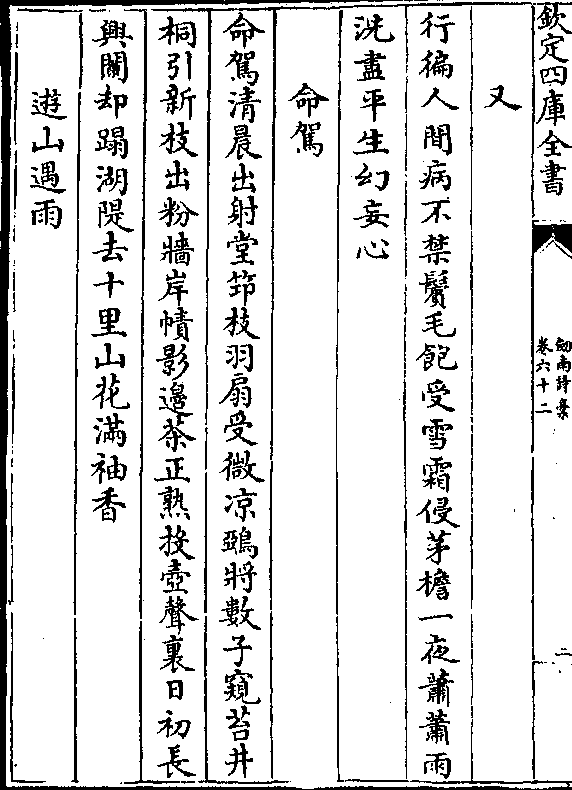 欽定四庫全書
劒南詩稾
卷六十二
二
又
行徧人間病不禁鬢毛飽受雪霜侵茅檐一夜蕭蕭雨
洗盡平生幻妄心
命駕
命駕清晨出射堂筇枝羽扇受微凉鵶將數子窺苔井
桐引新枝出粉牆岸幘影邉茶正熟投壺聲裏日初長
興闌却蹋湖隄去十里山花滿袖香
遊山遇雨